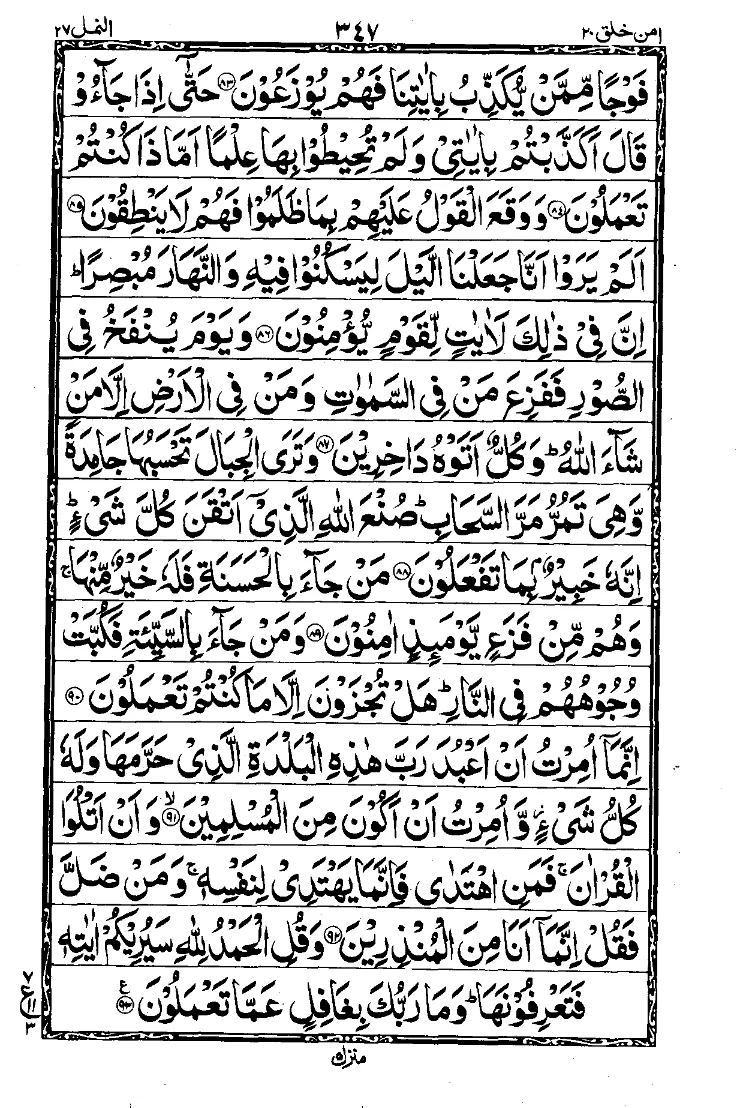 امن خلق ٢٠ ٣٤٧ النمل ٢٧
فَوْجًا مِّمَّنْ يُّكَذِّبُ بِاٰيٰتِنَا فَهُمْ يُوْزَعُوْنَ ﴿٨٣﴾ حَتّٰۤى اِذَا جَآءُوْ
قَالَ اَكَذَّبْتُمْ بِاٰيٰتِيْ وَلَمْ تُحِيْطُوْا بِهَا عِلْمًا اَمَّا ذَا كُنْتُمْ
تَعْمَلُوْنَ ﴿٨٤﴾ وَوَقَعَ الْقَوْلُ عَلَيْهِمْ بِمَا ظَلَمُوْا فَهُمْ لَا يَنْطِقُوْنَ ﴿٨٥﴾
اَلَمْ يَرَوْا اَنَّا جَعَلْنَا الَّيْلَ لِيَسْكُنُوْا فِيْهِ وَالنَّهَارَ مُبْصِرًا ؕ
اِنَّ فِيْ ذٰلِكَ لَاٰيٰتٍ لِّقَوْمٍ يُّؤْمِنُوْنَ ﴿٨٦﴾ وَيَوْمَ يُنْفَخُ فِي
الصُّوْرِ فَفَزِعَ مَنْ فِي السَّمٰوٰتِ وَمَنْ فِي الْاَرْضِ اِلَّا مَنْ
شَآءَ اللّٰهُ ؕ وَكُلٌّ اَتَوْهُ دَاخِرِيْنَ ﴿٨٧﴾ وَتَرَى الْجِبَالَ تَحْسَبُهَا جَامِدَةً
وَّهِيَ تَمُرُّ مَرَّ السَّحَابِ ؕ صُنْعَ اللّٰهِ الَّذِيْۤ اَتْقَنَ كُلَّ شَيْءٍ ؕ
اِنَّهٗ خَبِيْرٌۢ بِمَا تَفْعَلُوْنَ ﴿٨٨﴾ مَنْ جَآءَ بِالْحَسَنَةِ فَلَهٗ خَيْرٌ مِّنْهَا ۚ
وَهُمْ مِّنْ فَزَعٍ يَّوْمَىِٕذٍ اٰمِنُوْنَ ﴿٨٩﴾ وَمَنْ جَآءَ بِالسَّيِّئَةِ فَكُبَّتْ
وُجُوْهُهُمْ فِي النَّارِ ؕ هَلْ تُجْزَوْنَ اِلَّا مَا كُنْتُمْ تَعْمَلُوْنَ ﴿٩٠﴾
اِنَّمَاۤ اُمِرْتُ اَنْ اَعْبُدَ رَبَّ هٰذِهِ الْبَلْدَةِ الَّذِيْ حَرَّمَهَا وَلَهٗ
كُلُّ شَيْءٍ ؗ وَّاُمِرْتُ اَنْ اَكُوْنَ مِنَ الْمُسْلِمِيْنَ ۙ﴿٩١﴾ وَاَنْ اَتْلُوَا
الْقُرْاٰنَ ۚ فَمَنِ اهْتَدٰى فَاِنَّمَا يَهْتَدِيْ لِنَفْسِهٖ ۚ وَمَنْ ضَلَّ
فَقُلْ اِنَّمَاۤ اَنَا مِنَ الْمُنْذِرِيْنَ ﴿٩٢﴾ وَقُلِ الْحَمْدُ لِلّٰهِ سَيُرِيْكُمْ اٰيٰتِهٖ
فَتَعْرِفُوْنَهَا ؕ وَمَا رَبُّكَ بِغَافِلٍ عَمَّا تَعْمَلُوْنَ ﴿٩٣﴾ ع
٧
ع ١١
٣
منزل ٥